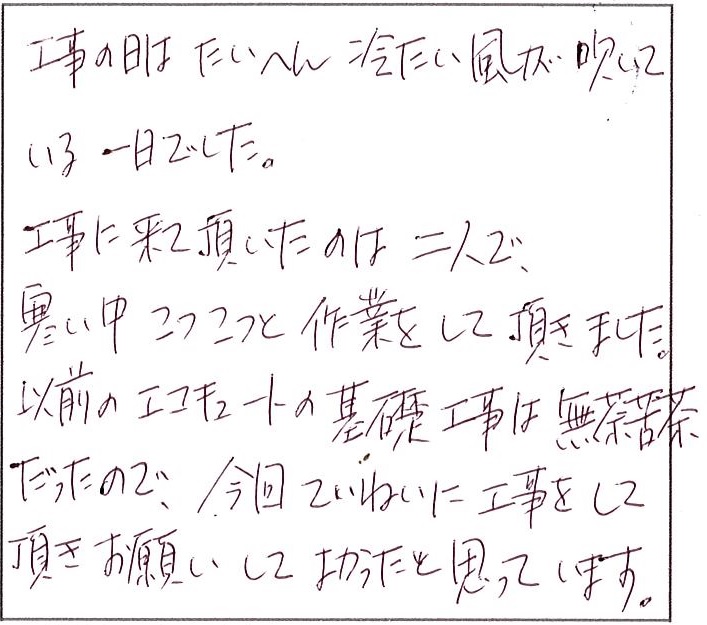 工事の日は たいへん 冷たい風が 吹いて
いる 一日でした。
工事に来て頂いたのは 二人で、
寒い中 こつこつと 作業をして 頂きました。
以前の エコキュートの 基礎工事は 無茶苦茶
だったので、今回 ていねいに 工事をして
頂き お願いして よかったと思っています。